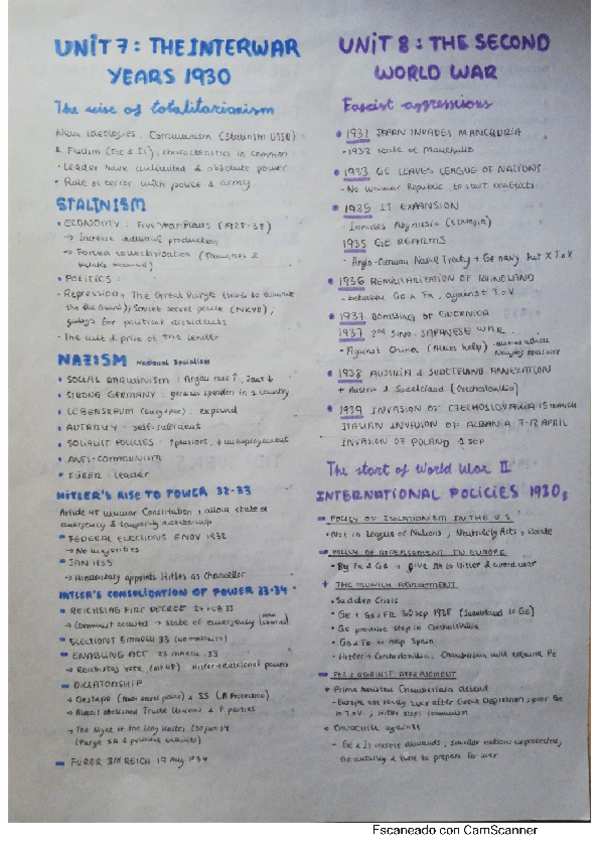 UNIT 7: THE INTERWAR
YEARS 1930
The rise of totalitarianism
New ideologies, Communism (Stalinism USSR)
& Fascism (Ge & It), characteristics in common
- Leader have unlimited & absolute power
- Rule of terror with police & army
STALINISM
• ECONOMY: Five Year Plans (1928-38)
→ Increase industrial production
→ Forced collectivisation
• POLITICS:
- Repression, The Great Purge
the Old Guard), Soviet secret police (NKVD),
gulags for political dissidents
- The cult & price of the leader
NAZISM National Socialism
• SOCIAL DARWINISM: Aryan race ↑, Jews ↓
• STRONG GERMANY: german speakers in 1 country
• LEBENSRAUM (living space): expand
• AUTARKY: self-sufficient
• SOCIALIST POLICIES: ↑ pensions, ↓ unemployment
• ANTI-COMMUNISM
• FÜRER: leader
HITLER'S RISE TO POWER 32-33
Article 48 Weimar Constitution: allow state of
emergency & temporary dictatorship
FEDERAL ELECTIONS 6 NOV 1932
→ No majorities
JAN 1933
→ Hindenburg appoints Hitler as Chancellor
HITLER'S CONSOLIDATION OF POWER 33-34
REICHSTAG FIRE DECREE
→ Communist accused → state of emergency
ELECTIONS 5 MARCH 33 (no majority)
ENABLING ACT 23 march 33
→ Reichstag vote, Hitler exceptional powers
DICTATORSHIP
→ Gestapo (Nazi secret police) & SS
→ Abolished Trade Unions & P. parties
→ The Night of the Long Knives (30 jun 34)
(Purge SA & political enemies)
FÜRER 3rd REICH 19 Aug 1934
UNIT 8: THE SECOND
WORLD WAR
Fascist aggressions
• 1931 JAPAN INVADES MANCHURIA
- 1932 state of Manchukuo
• 1933 GE LEAVES LEAGUE OF NATIONS
- No Weimar Republic, to start conflicts
• 1935 IT EXPANSION
- Invades Abyssinia (Ethiopia)
1935 GE REARMS
- Anglo-German Naval Treaty → Ge navy but X T.o.V.
• 1936 REMILITARIZATION OF RHINELAND
- between Ge & Fr, against T.o.V
• 1937 BOMBING OF GUERNICA
1937 2nd SINO-JAPANESE WAR
- Against China (Allies help)
Nanjing massacre
• 1938 AUSTRIA & SUDETELAND ANNEXATION
+ Austria & Sudeteland (Czechoslovakia)
• 1939 INVASION OF CZECHOSLOVAKIA 15 march
ITALIAN INVASION OF ALBANIA 7-12 APRIL
INVASION OF POLAND 1 SEP
The start of World War II
INTERNATIONAL POLICIES 1930s
POLICY OF ISOLATIONISM IN THE U.S
• Not in League of Nations, Neutrality Acts
POLICY OF APPEASEMENT IN EUROPE
- By Fr & GB → give in to Hitler & avoid war
+ THE MUNICH AGREEMENT
• Sudeten Crisis
• Ge + GB & FR 30 sep 1938 (Sudeteland is Ge)
• Ge promise stop in Czechoslovakia
• GB & Fr no help Spain
- Hitler → Confrontation, Chamberlain will tolerate Ge
FOR & AGAINST APPEASEMENT
• Prime minister Chamberlain defend
- Europe not ready war after Great Depression; poor Ge
in T.o.V.; Hitler stops communism
• Churchill against
- Ge & It increase demands, smaller nations unprotected,
Ge autarky & time to prepare for war
Escaneado con CamScanner